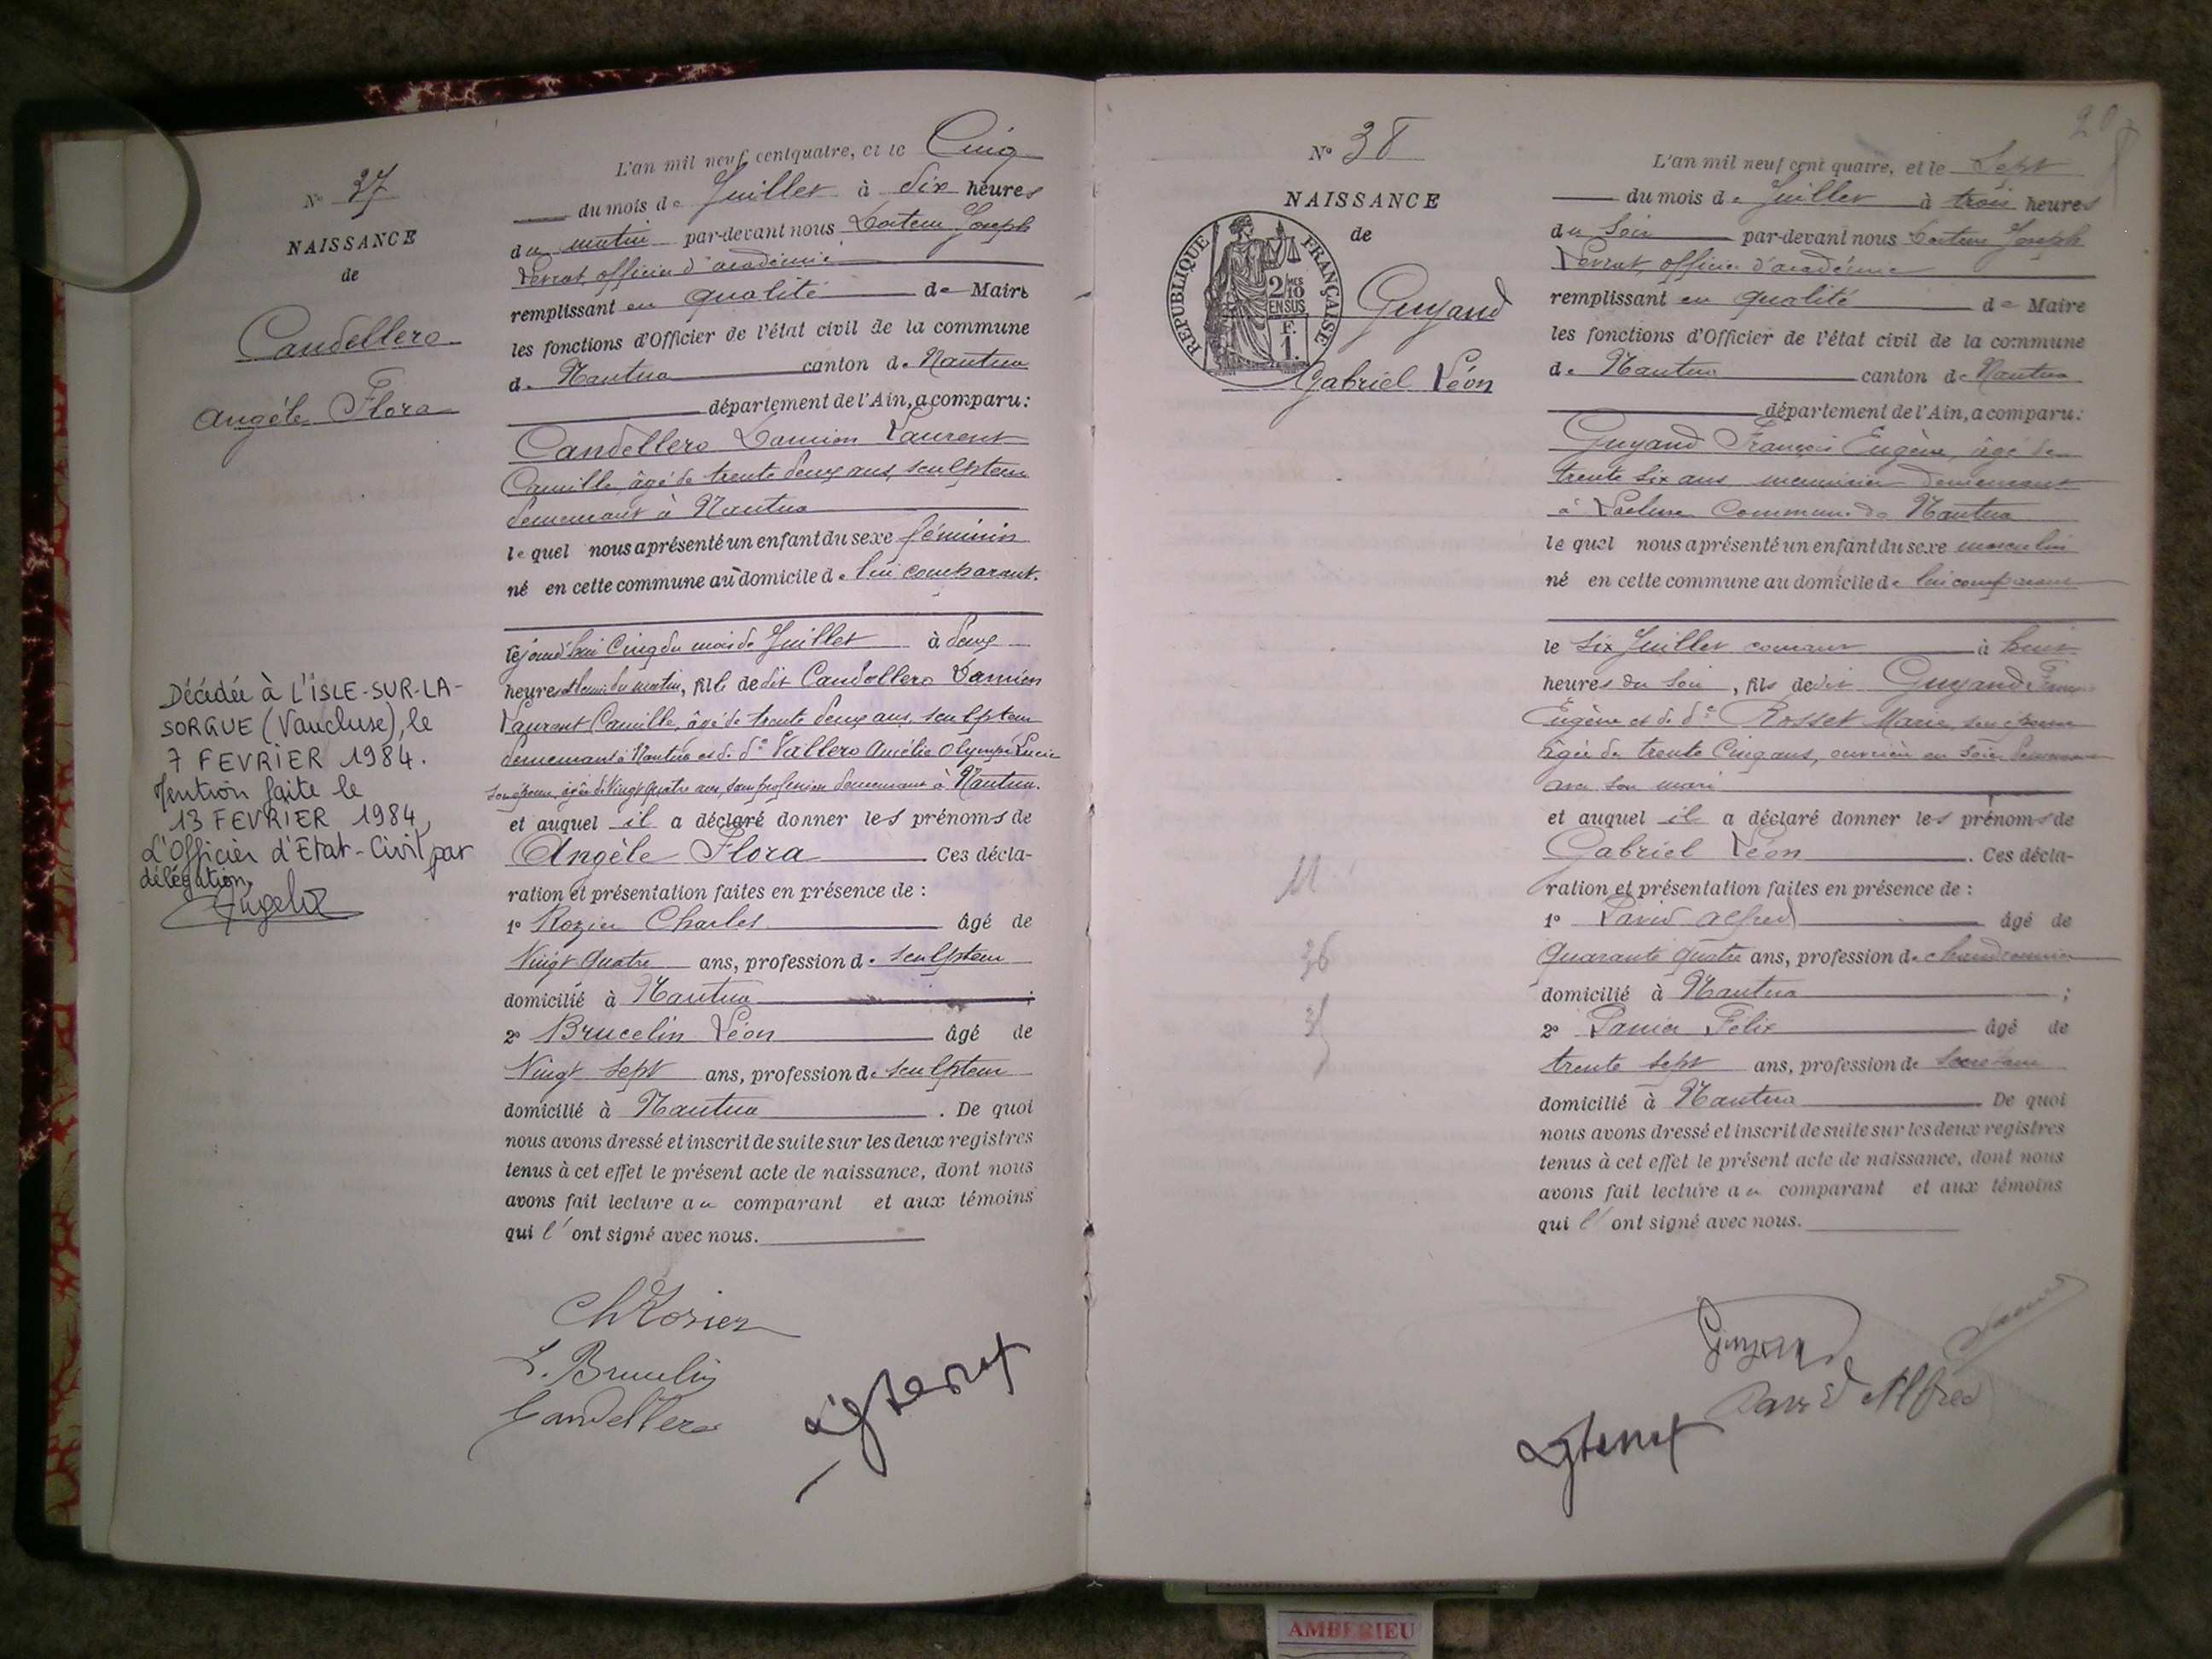 N° 37
NAISSANCE
de
Candellero
Angèle Flora
Décédée à L'ISLE-SUR-LA-
SORGUE (Vaucluse), le
7 FEVRIER 1984.
Mention faite le
13 FEVRIER 1984,
L'Officier d'Etat-Civil par
délégation,
L'an mil neuf cent quatre, et le Cinq
du mois de Juillet à dix heures
du matin par-devant nous Docteur Joseph
officier d'académie
remplissant en qualité de Maire
les fonctions d'Officier de l'état civil de la commune
de Nantua canton de Nantua
département de l'Ain, a comparu :
Candellero Damien Laurent
Camille, âgé de trente deux ans, sculpteur
demeurant à Nantua
lequel nous a présenté un enfant du sexe féminin
né en cette commune au domicile de lui comparant.
cejourd'hui Cinq du mois de Juillet à deux
heures et demi du matin, fils de dit Candellero Damien
Laurent Camille, âgé de trente deux ans, sculpteur
demeurant à Nantua et de de Vallero Amélie Olympe Lucie
son épouse, âgée de Vingt quatre ans, sans profession demeurant à Nantua.
et auquel il a déclaré donner les prénoms de
Angèle Flora Ces décla-
ration et présentation faites en présence de :
1° Rozier Charles âgé de
Vingt quatre ans, profession de sculpteur
domicilié à Nantua ;
2° Brucelin Léon âgé de
Vingt sept ans, profession de sculpteur
domicilié à Nantua . De quoi
nous avons dressé et inscrit de suite sur les deux registres
tenus à cet effet le présent acte de naissance, dont nous
avons fait lecture au comparant et aux témoins
qui l'ont signé avec nous.
Ch Rozier
L. Brucelin
Candellero
N° 38
NAISSANCE
de
RÉPUBLIQUE FRANÇAISE
2 MES
10
EN SUS
F.
1.
Guyand
Gabriel Léon
11
36
L'an mil neuf cent quatre, et le Sept
du mois de Juillet à trois heures
du soir par-devant nous Docteur Joseph
officier d'académie
remplissant en qualité de Maire
les fonctions d'Officier de l'état civil de la commune
de Nantua canton de Nantua
département de l'Ain, a comparu :
Guyand François Eugène, âgé de
trente six ans menuisier demeurant
à Lacluse Commune de Nantua
lequel nous a présenté un enfant du sexe masculin
né en cette commune au domicile de lui comparant
le six Juillet courant à huit
heures du soir, fils de dit Guyand François
Eugène et de de Rosset Marie, son épouse
âgée de trente Cinq ans, ouvrière en soie demeurant
avec son mari
et auquel il a déclaré donner les prénoms de
Gabriel Léon . Ces décla-
ration et présentation faites en présence de :
1° David Alfred âgé de
Quarante quatre ans, profession de chaudronnier
domicilié à Nantua ;
2° Panier Félix âgé de
trente sept ans, profession de secrétaire
domicilié à Nantua De quoi
nous avons dressé et inscrit de suite sur les deux registres
tenus à cet effet le présent acte de naissance, dont nous
avons fait lecture au comparant et aux témoins
qui l'ont signé avec nous.
Guyand
David Alfred
AMBERIEU